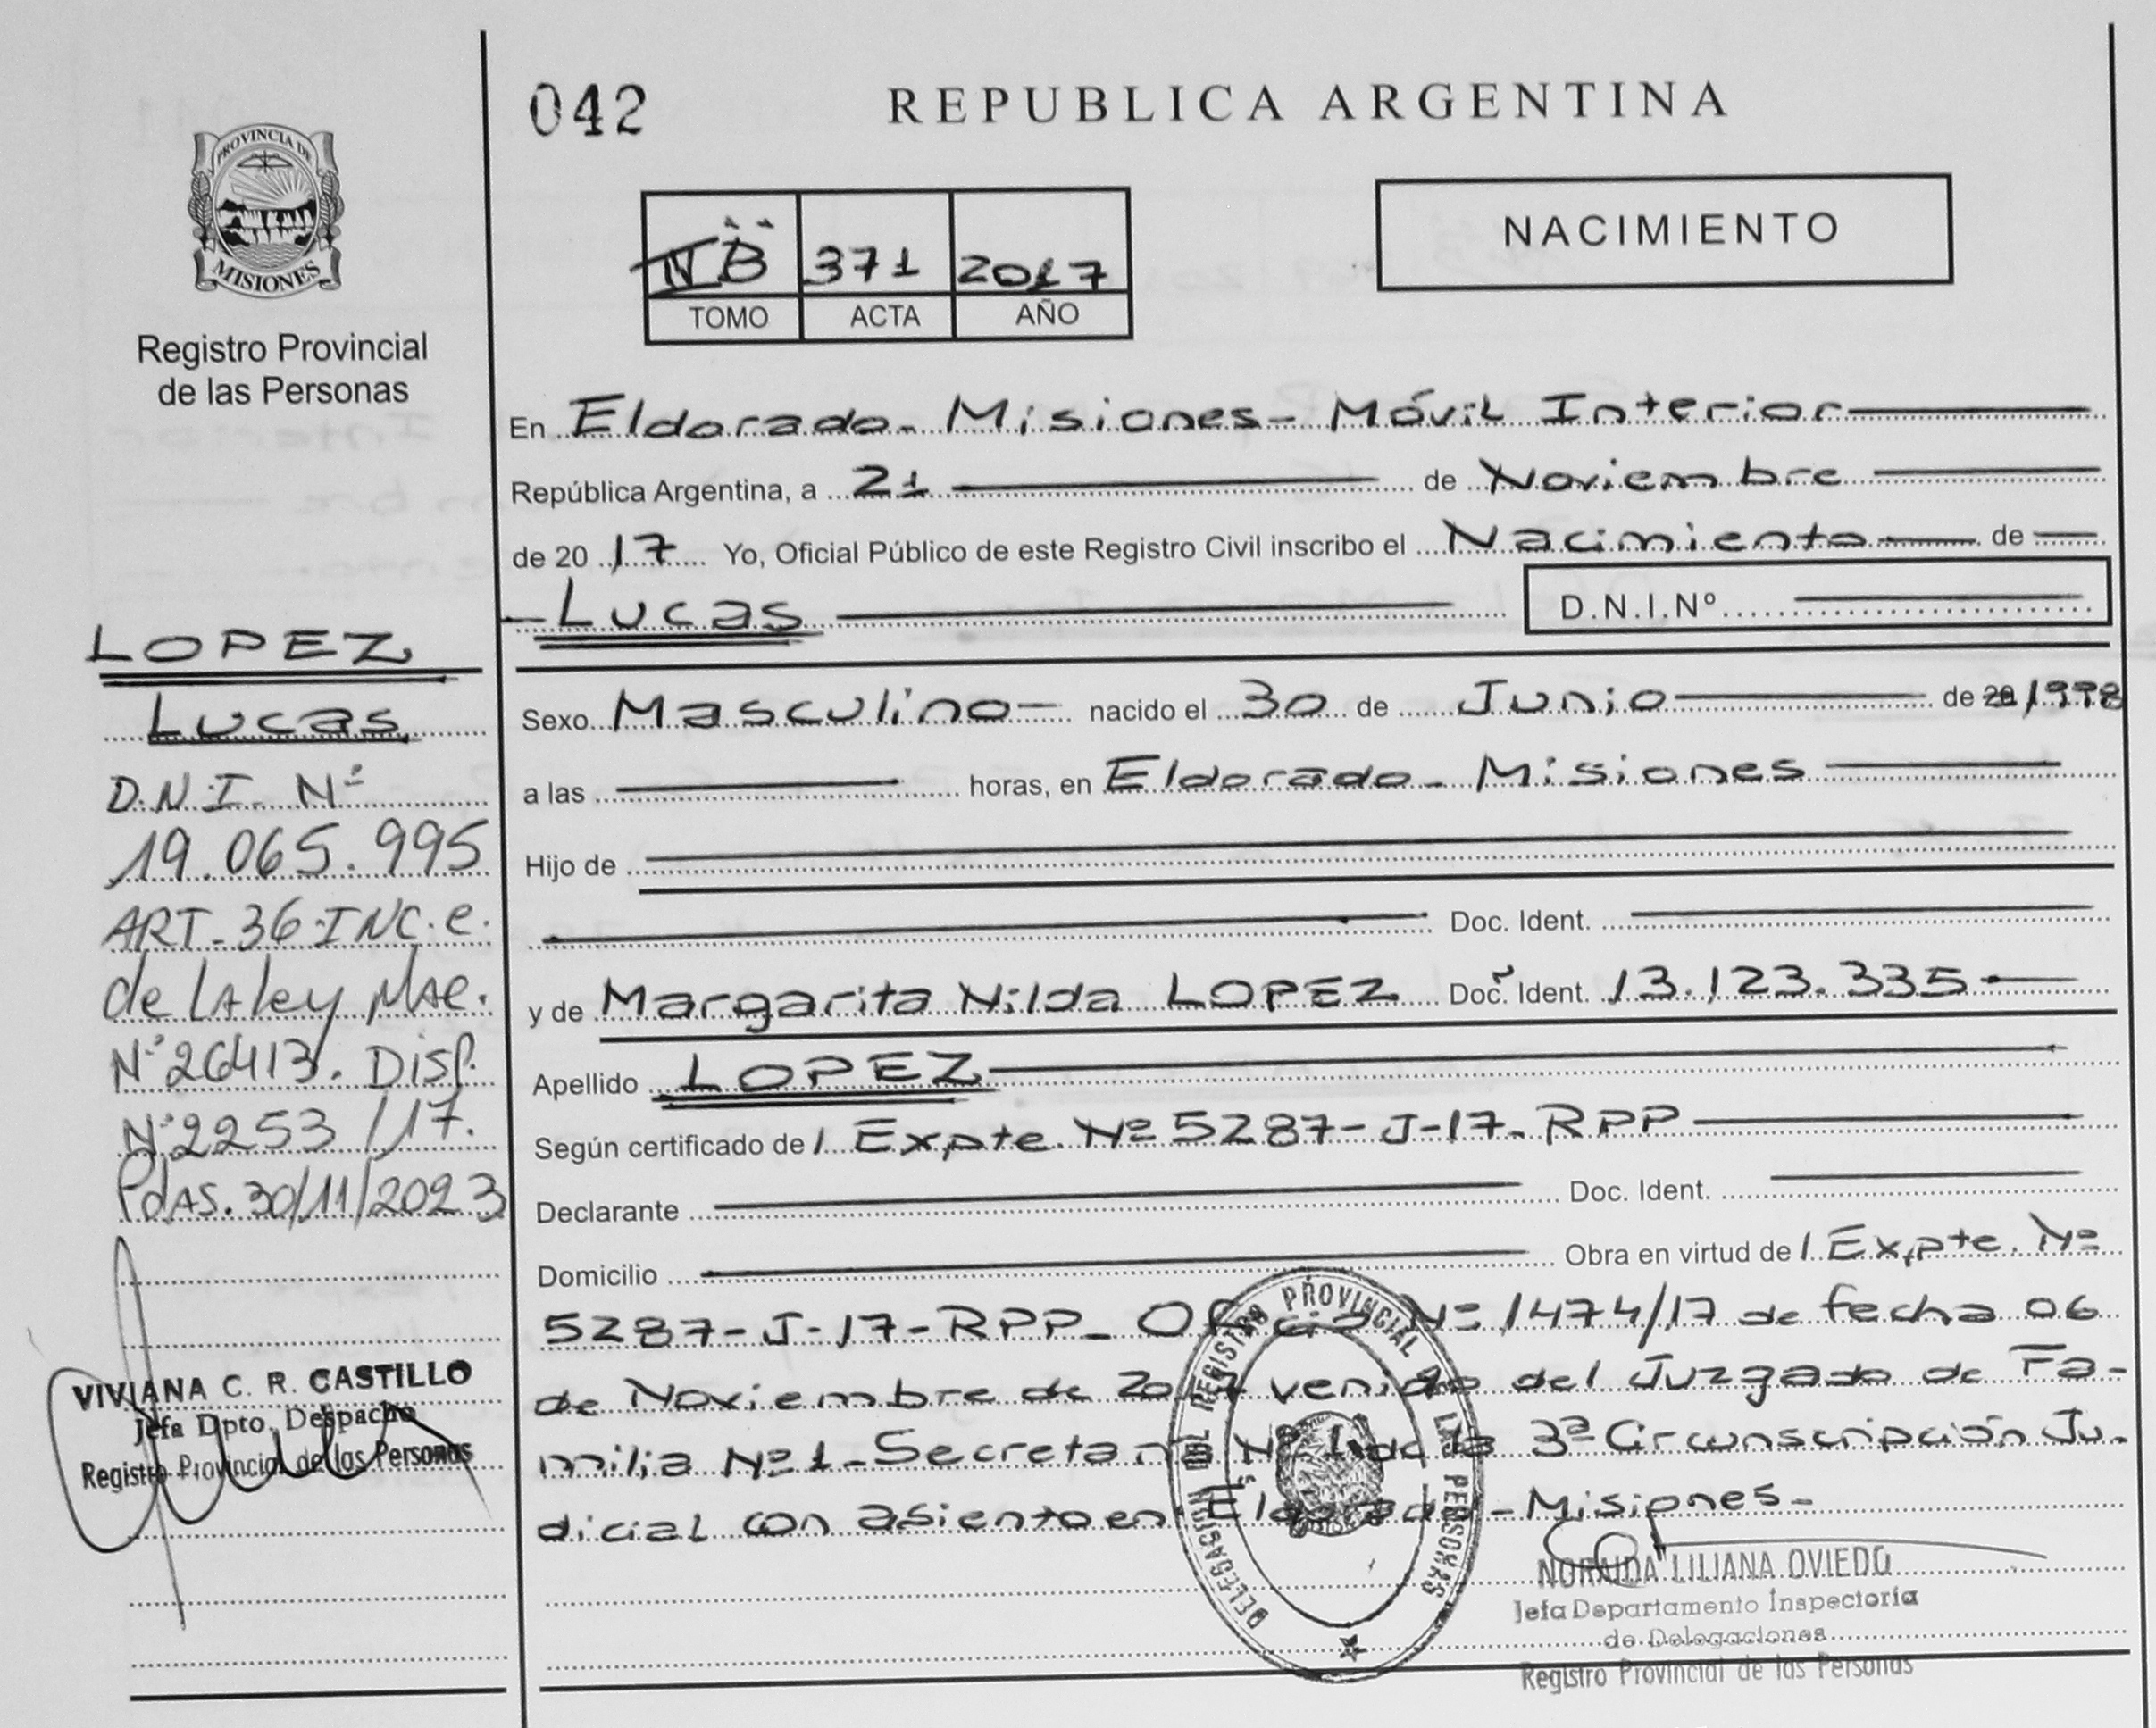 PROVINCIA DE
MISIONES
Registro Provincial
de las Personas
LOPEZ
Lucas
D.N.I. Nº
19.065.995
ART. 36 INC. e.
de LA ley NAC.
Nº 26413. DISP.
Nº 2253/17.
PdAS. 30/11/2023
VIVIANA C. R. CASTILLO
Jefa Dpto. Despacho
Registro Provincial de las Personas
042
REPUBLICA ARGENTINA
371 2017
TOMO ACTA AÑO
NACIMIENTO
En Eldorado - Misiones - Móvil Interior
República Argentina, a 21 de Noviembre
de 2017 Yo, Oficial Público de este Registro Civil inscribo el Nacimiento de
Lucas D.N.I.Nº
Sexo Masculino nacido el 30 de Junio de 20 1998
a las horas, en Eldorado - Misiones
Hijo de
Doc. Ident.
y de Margarita Nilda LOPEZ Doc. Ident. 13.123.335
Apellido LOPEZ
Según certificado de / Expte. Nº 5287-J-17-RPP
Declarante Doc. Ident.
Domicilio Obra en virtud de / Expte. Nº
5287-J-17-RPP - Oficio Nº 1474/17 de fecha 06
de Noviembre de 2017 venido del Juzgado de Fa-
milia Nº 1 - Secretaría Nº 1 de la 3ª Circunscripción Ju-
dicial con asiento en Eldorado - Misiones -
DELEGACION DEL REGISTRO PROVINCIAL DE LAS PERSONAS
NORAIDA LILIANA OVIEDO
Jefa Departamento Inspectoría
de Delegaciones
Registro Provincial de las Personas